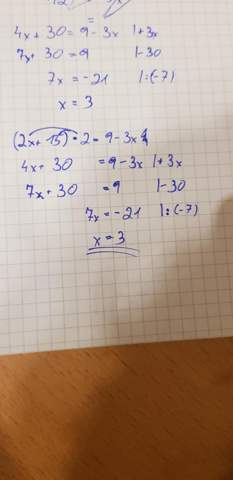 4x + 30 = 9 - 3x |+3x
7x + 30 = 9 |-30
7x = -21 |:(-7)
x = 3
(2x + 15) • 2 = 9 - 3x
4x + 30 = 9 - 3x |+3x
7x + 30 = 9 |-30
7x = -21 |:(-7)
x = 3